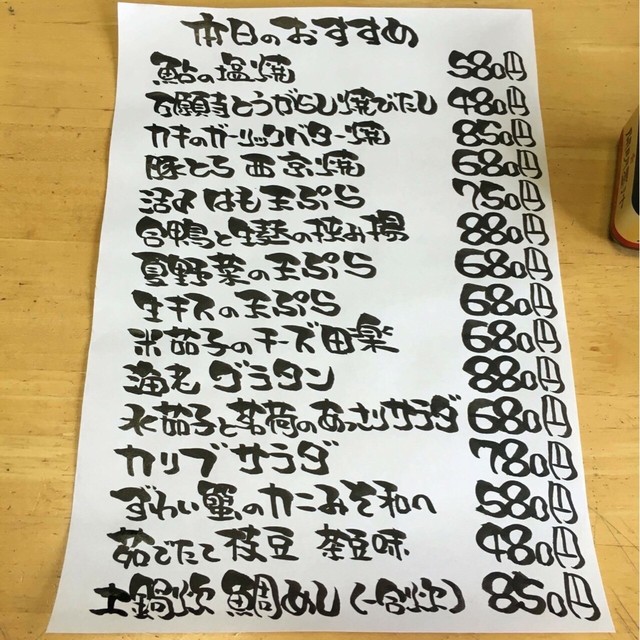 本日のおすすめ
鮎の塩焼 580円
万願寺とうがらし焼びたし 480円
カキのガーリックバター焼 850円
豚とろ 西京焼 680円
活〆はも天ぷら 750円
合鴨と生麩の挟み揚 880円
夏野菜の天ぷら 680円
生キスの天ぷら 680円
米茄子のチーズ田楽 680円
海老 グラタン 880円
水茄子と茗荷のあっさりサラダ 680円
カリブサラダ 780円
ずわい蟹のカニみそ和へ 580円
茹でたて枝豆 茶豆味 480円
土鍋炊 鯛めし(一合炊) 850円